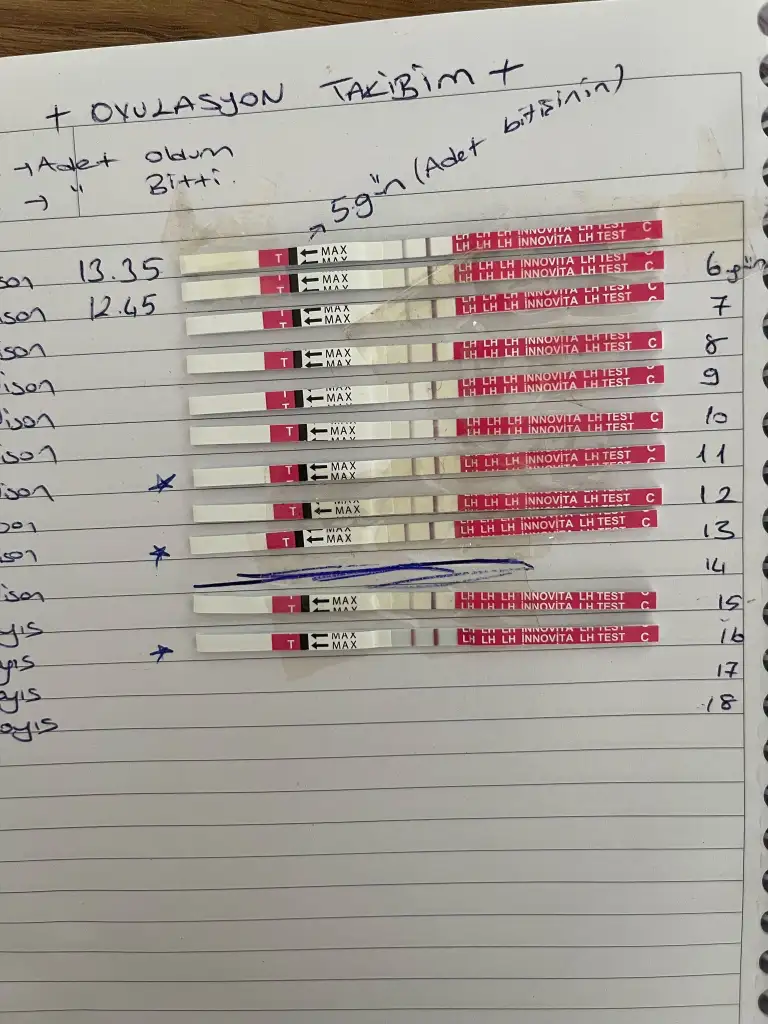 + OVULASYON TAKİBİM +
→ Adet oldum
→ " Bitti.
5.gün (Adet bitişinin)
T ← MAX LH LH LH INNOVİTA LH TEST C
13.35 ← MAX LH LH LH INNOVİTA LH TEST C 6.gün
12.45 T ← MAX LH LH LH INNOVİTA LH TEST C 7
T ← MAX LH LH LH INNOVİTA LH TEST C 8
T ← MAX LH LH LH INNOVİTA LH TEST C 9
T ← MAX LH LH LH INNOVİTA LH TEST C 10
T ← MAX LH LH LH INNOVİTA LH TEST C 11
T ← MAX LH LH LH INNOVİTA LH TEST C 12
T ← MAX LH LH LH INNOVİTA LH TEST C 13
14
T ← MAX LH LH LH INNOVİTA LH TEST C 15
T ← MAX LH LH LH INNOVİTA LH TEST C 16
17
18